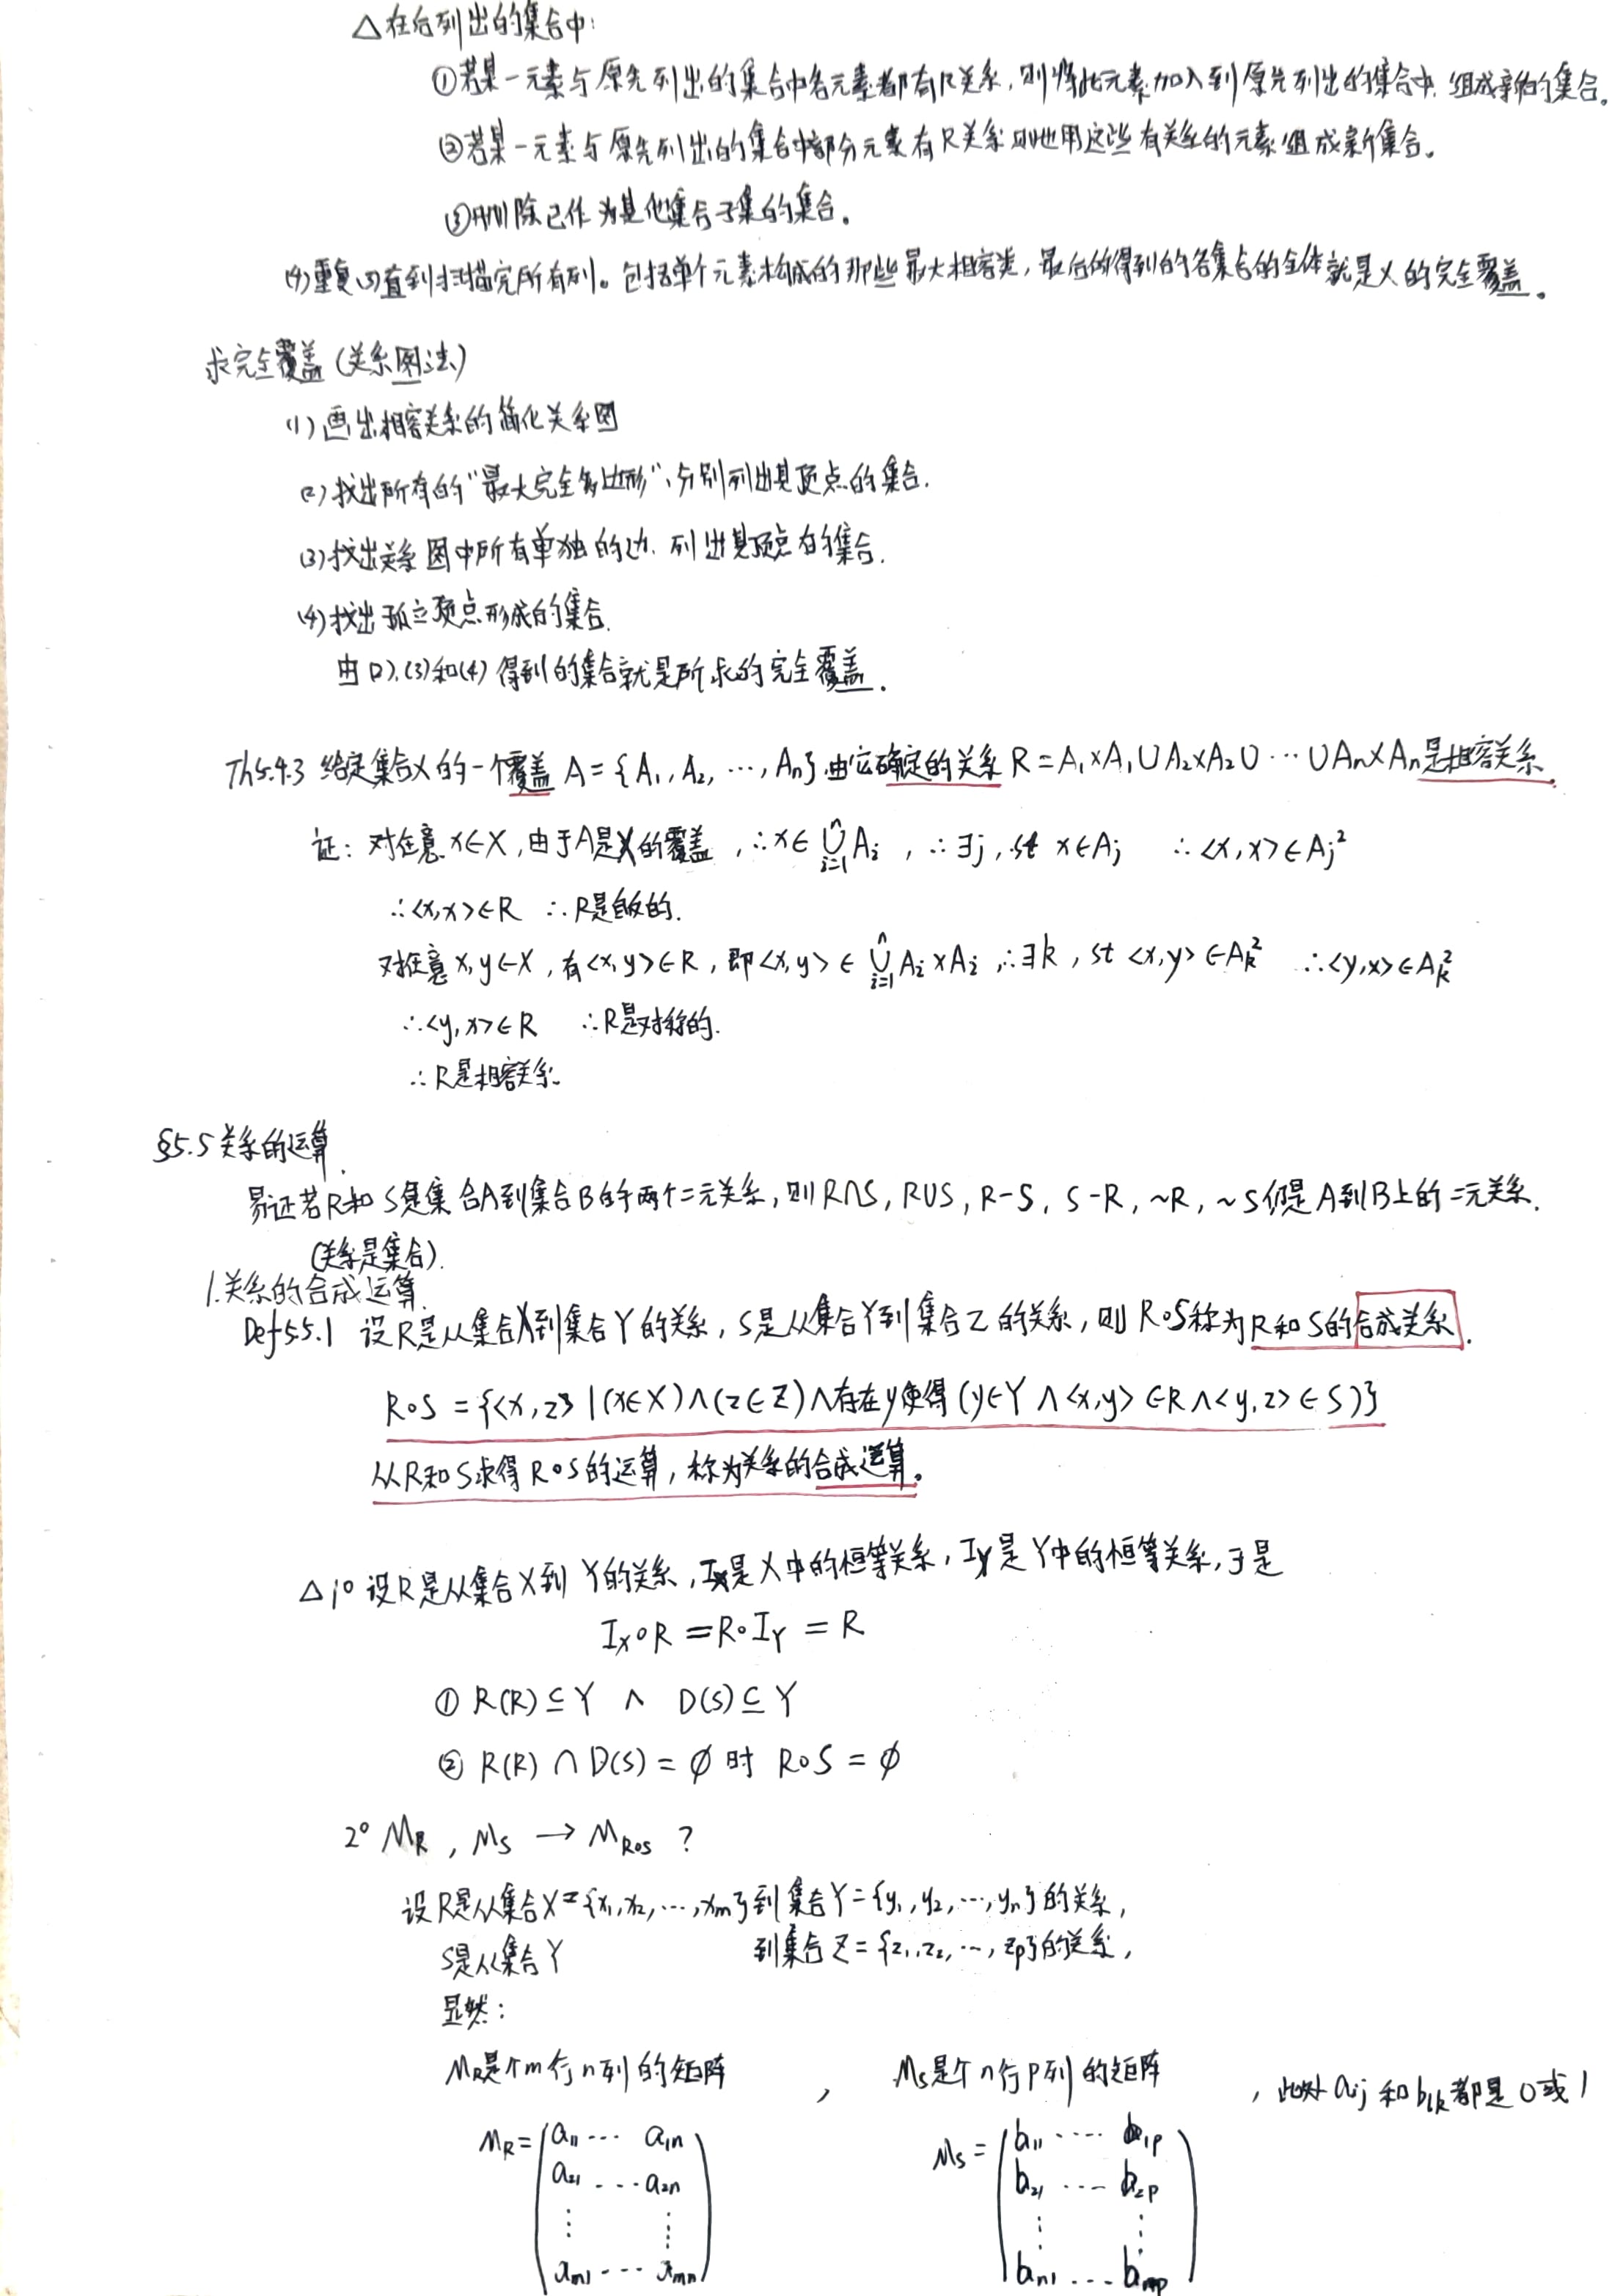 △在后列出的集合中:
①若某一元素与原先列出的集合中各元素都有R关系,则将此元素加入到原先列出的集合中,组成新的集合。
②若某一元素与原先列出的集合中部分元素有R关系则也用这些有关系的元素组成新集合。
③删除已作为其他集合子集的集合。
(4)重复(3)直到扫描完所有列。包括单个元素构成的那些最大相容类,最后所得到的各集合的全体就是X的完全覆盖。
求完全覆盖(关系图法)
(1)画出相容关系的简化关系图
(2)找出所有的"最大完全多边形",分别列出其顶点的集合.
(3)找出关系图中所有单独的边,列出其顶点的集合.
(4)找出孤立顶点形成的集合.
由(2),(3)和(4)得到的集合就是所求的完全覆盖.
Th5.4.3 给定集合X的一个覆盖 A={A₁,A₂,…,Aₙ},由它确定的关系 R=A₁×A₁∪A₂×A₂∪…∪Aₙ×Aₙ是相容关系.
证: 对任意 x∈X,由于A是X的覆盖,∴x∈⋃ⁿᵢ₌₁Aᵢ,∴∃j,st x∈Aⱼ ∴<x,x>∈Aⱼ²
∴<x,x>∈R ∴R是自反的.
对任意x,y∈X,有<x,y>∈R,即<x,y>∈⋃ⁿᵢ₌₁Aᵢ×Aᵢ ∴∃k,st <x,y>∈Aₖ² ∴<y,x>∈Aₖ²
∴<y,x>∈R ∴R是对称的.
∴R是相容关系.
§5.5关系的运算.
易证若R和S是集合A到集合B的两个二元关系,则R∩S,R∪S,R-S,S-R,~R,~S仍是A到B上的二元关系.
(关系是集合).
1.关系的合成运算.
Def5.5.1 设R是从集合X到集合Y的关系,S是从集合Y到集合Z的关系,则R∘S称为R和S的合成关系.
R∘S={<x,z>|(x∈X)∧(z∈Z)∧存在y使得(y∈Y∧<x,y>∈R∧<y,z>∈S)}
从R和S求得R∘S的运算,称为关系的合成运算。
△1° 设R是从集合X到Y的关系,Iₓ是X中的恒等关系,I_Y是Y中的恒等关系,于是
I_X∘R=R∘I_Y=R
① R(R)⊆Y ∧ D(S)⊆Y
② R(R)∩D(S)=∅时 R∘S=∅
2° M_R,M_S→M_R∘S ?
设R是从集合X={x₁,x₂,…,xₘ}到集合Y={y₁,y₂,…,yₙ}的关系,
S是从集合Y 到集合Z={z₁,z₂,…,zₚ}的关系,
显然:
M_R是个m行n列的矩阵 , M_S是个n行p列的矩阵 ,此处aᵢⱼ和bⱼₖ都是0或1
M_R=(a₁₁ … a₁ₙ M_S=(b₁₁ … b₁ₚ)
a₂₁ … a₂ₙ b₂₁ … b₂ₚ
⋮ ⋮ ⋮ ⋮
aₘ₁ … aₘₙ) bₙ₁ … bₙₚ